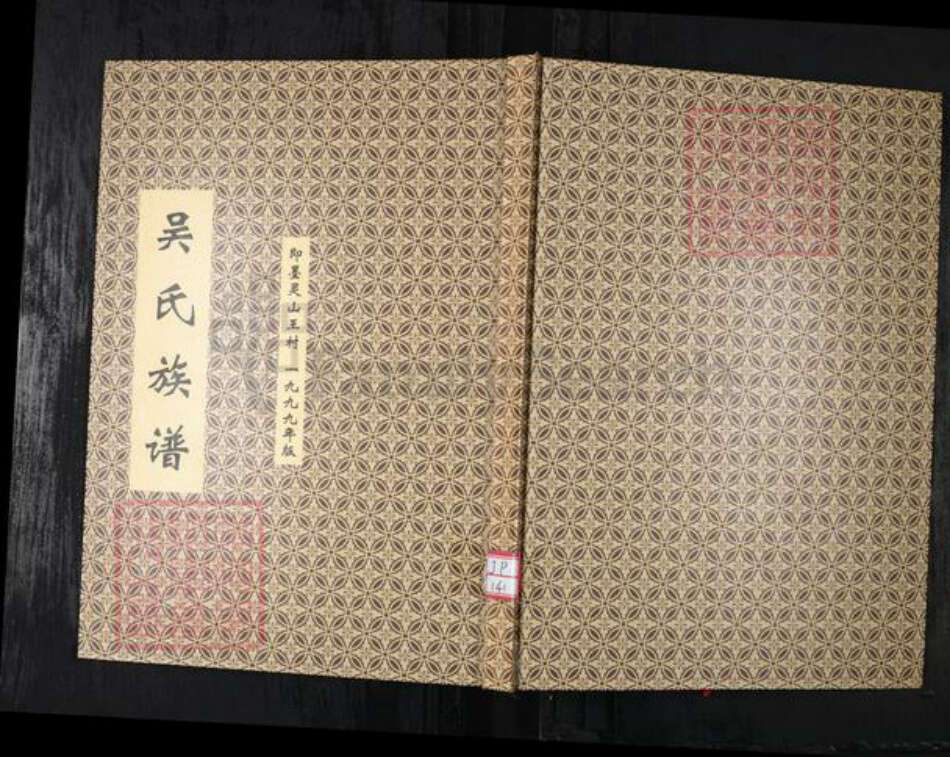 吴氏族谱
即墨灵山王村一九九九年版
JP
141